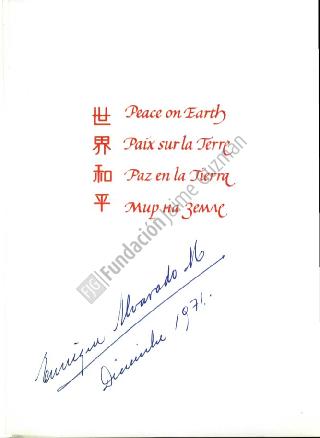 世界和平
Peace on Earth
Paix sur la Terre
Paz en la Tierra
Мир на Земле
FJG Fundación Jaime Guzmán
Enrique Alvarado M
Diciembre 1971.